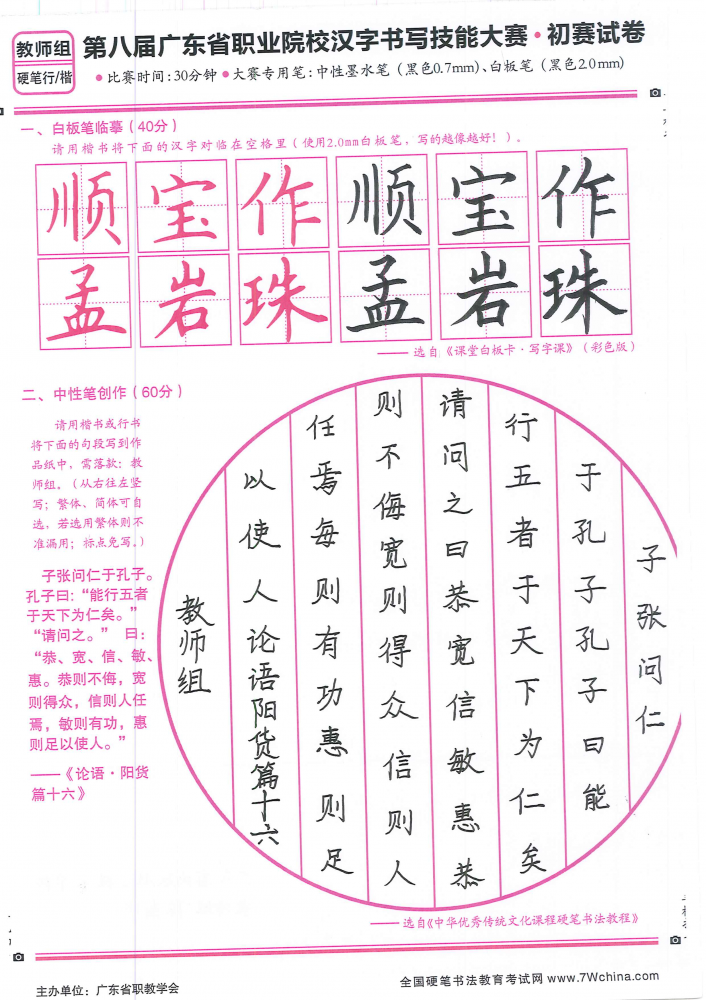 教师组
硬笔行/楷
第八届广东省职业院校汉字书写技能大赛·初赛试卷
●比赛时间:30分钟●大赛专用笔:中性墨水笔(黑色0.7mm)、白板笔(黑色2.0mm)
一、白板笔临摹(40分)
请用楷书将下面的汉字对临在空格里(使用2.0mm白板笔,写的越像越好!)。
顺宝作顺宝作
孟岩珠孟岩珠
——选自《课堂白板卡·写字课》(彩色版)
二、中性笔创作(60分)
请用楷书或行书
将下面的句段写到作
品纸中,需落款:教
师组。(从右往左竖
写;繁体、简体可自
选,若选用繁体则不
准漏用;标点免写。)
子张问仁于孔子。
孔子曰:“能行五者
于天下为仁矣。”
“请问之。”曰:
“恭、宽、信、敏、
惠。恭则不侮,宽
则得众,信则人任
焉,敏则有功,惠
则足以使人。”
——《论语·阳货
篇十六》
子张问仁
于孔子孔子曰能
行五者于天下为仁矣
请问之曰恭宽信敏惠恭
则不侮宽则得众信则人
任焉每则有功惠则足
以使人论语阳货篇十六
教师组
——选自《中华优秀传统文化课程硬笔书法教程》
主办单位:广东省职教学会
全国硬笔书法教育考试网 www.7Wchina.com